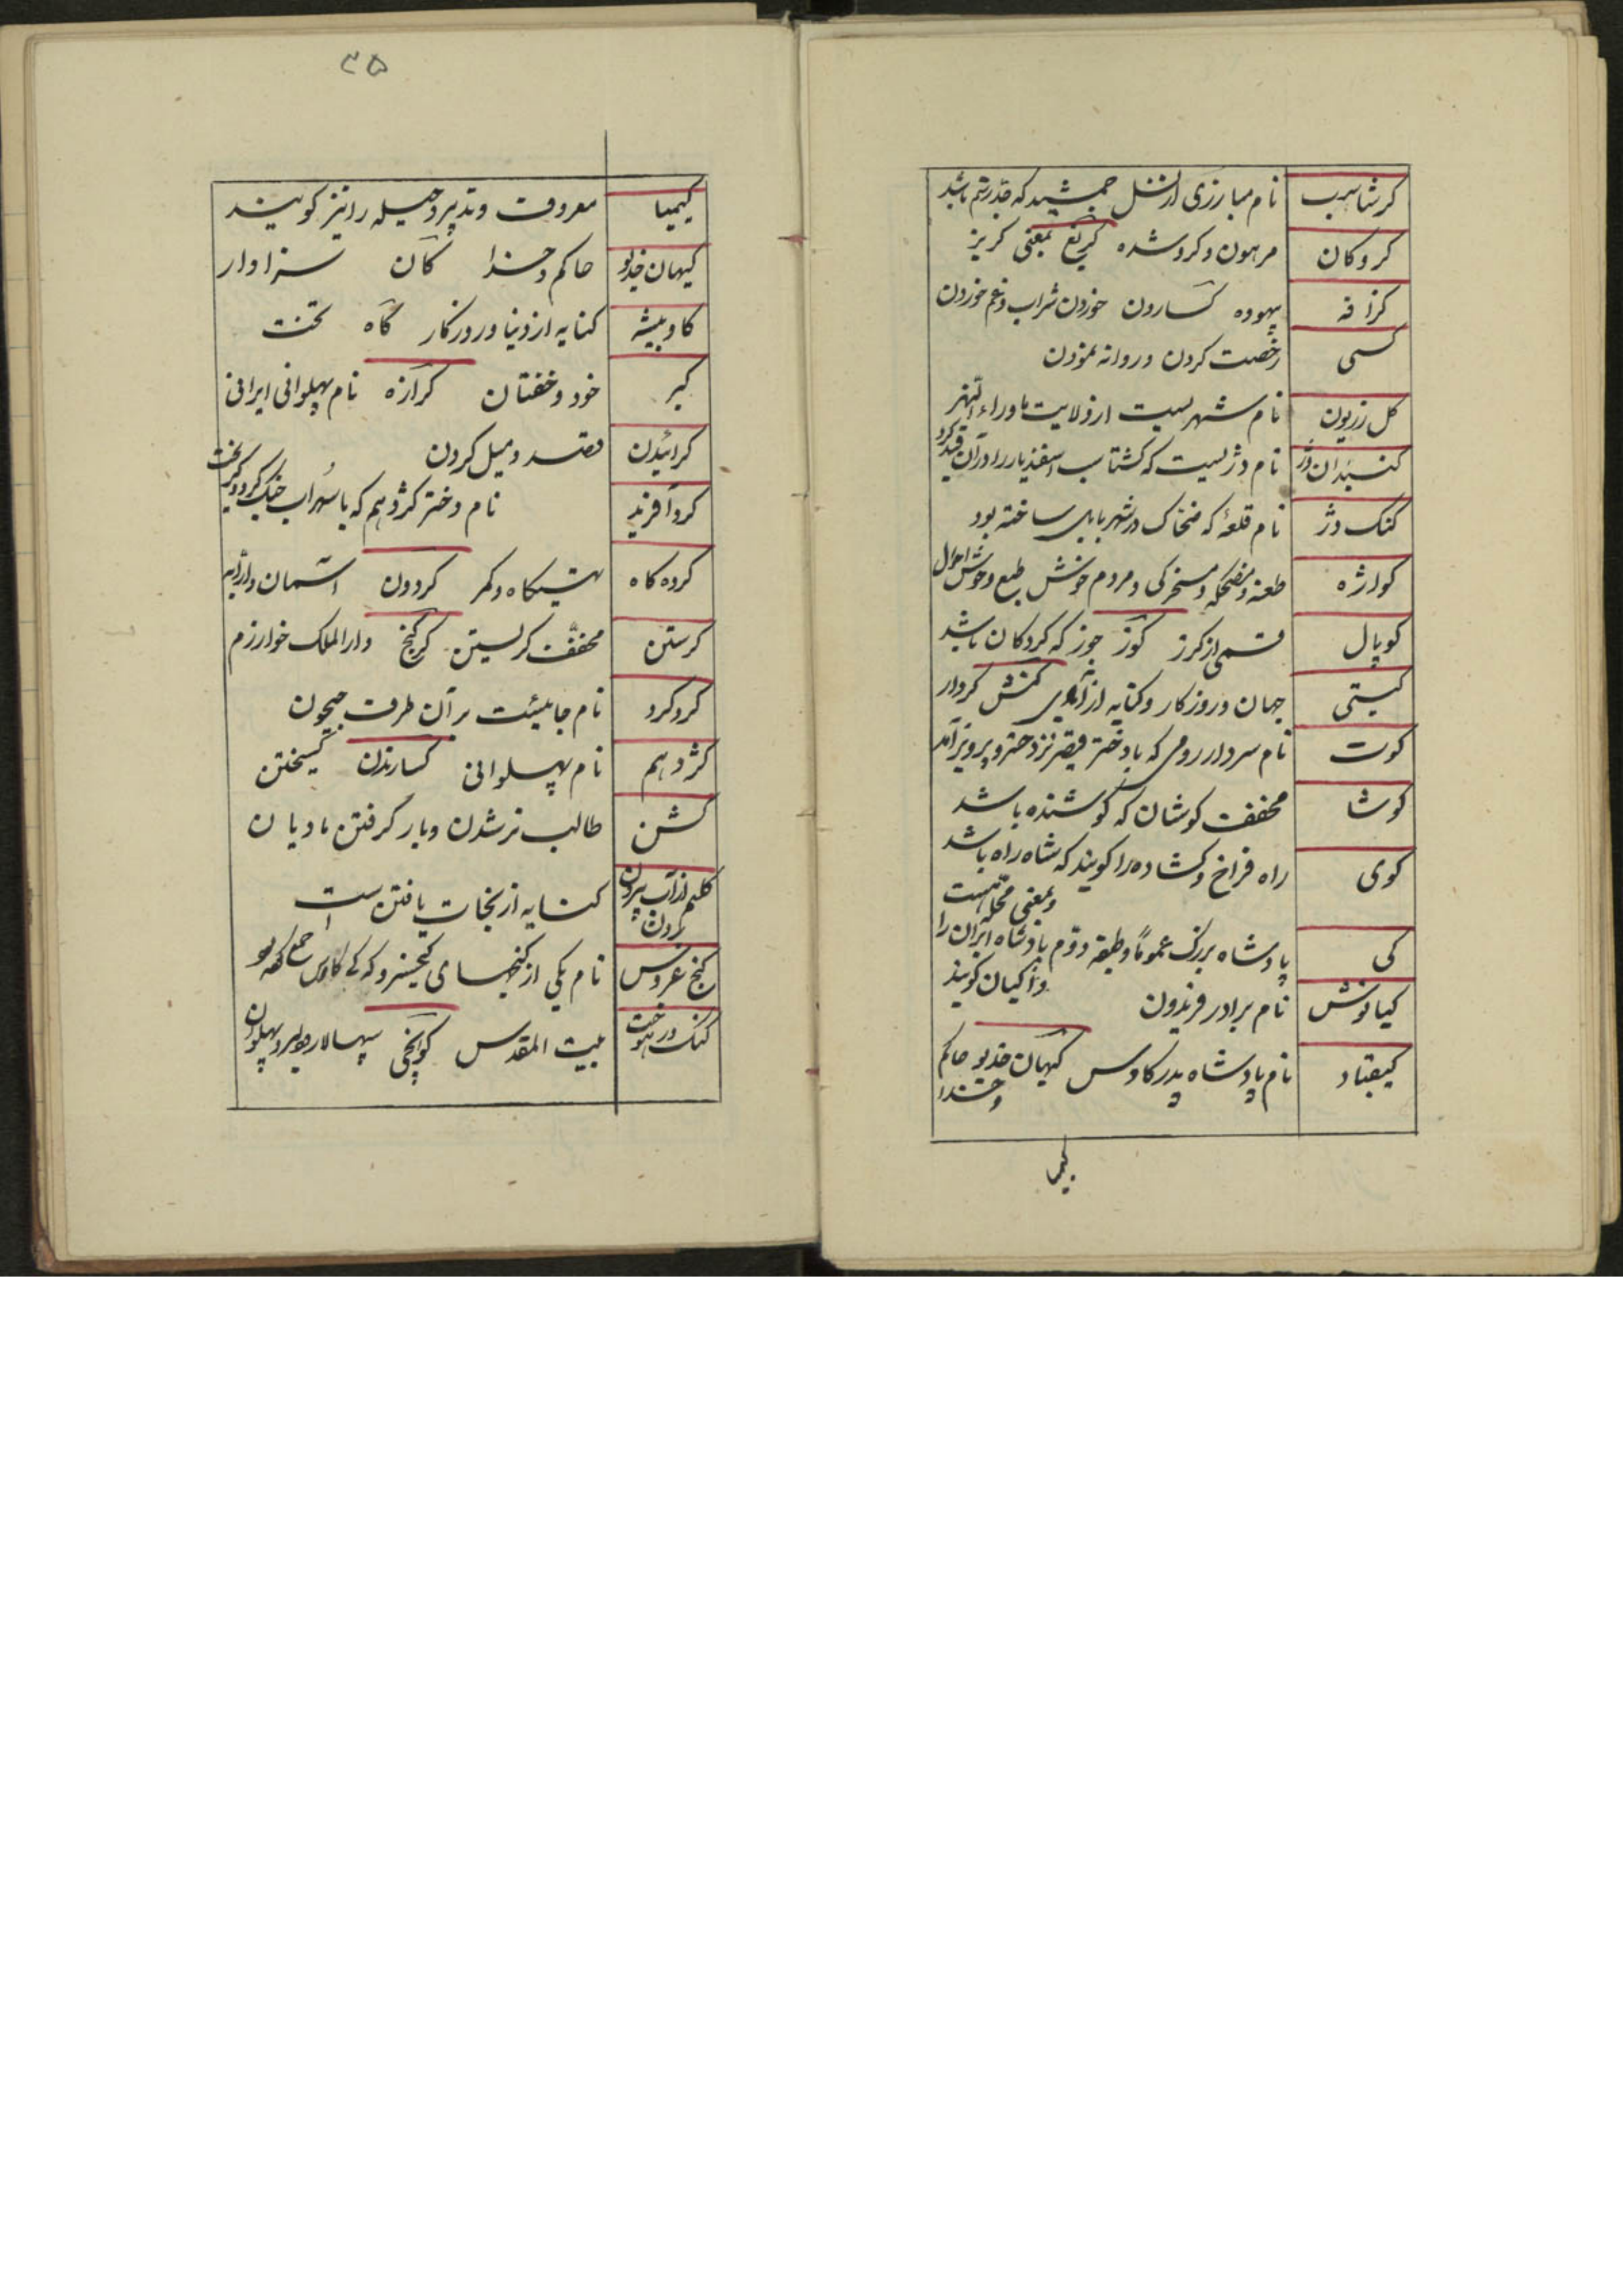 کرشاسب نام مبارزی از نسل جمشید که جد رستم باشد
کروکان مرهون و کرو شده کریغ بمعنی کریز
کزافه بیهوده کسارون خوردن شراب و غم خوردن
کسی رخصت کردن و روانه نمودن
کل زریون نام شهریست از ولایت ماوراء النهر
کنبدان دژ نام دژیست که کشتاسب اسفندیار را در آن قید کرد
کنک دژ نام قلعهٔ که ضحاک در شهر بابل ساخته بود
کوارژه طعنه و مضحکه و مسخرکی و مردم خوش طبع و خوش احوال
کوپال قسمی از کرز کوز جوز که کردکان باشد
کیتی جهان و روزکار و کنایه از کنش کردار
کوت نام سردار رومی که با دختر قیصر نزد خسرو پرویز آمد
کوشا مخفف کوشان که کوشنده باشد
کوی راه فراخ و کشاده را کویند که شاه راه باشد
و بمعنی محله است
کی پادشاه بزرک عموماً و طبقه دوم پادشاه ایران را
کیان کویند
کیانوش نام برادر فریدون
کیقباد نام پادشاه پدر کاوس کیهان خدیو حاکم
و خدا
کیمیا
۳۵
کیمیا معروف و تدبیر و حیله را نیز کویند
کیهان خدیو حاکم و خدا کان سزاوار
کاو بیشه کنایه از دنیا و روزکار کاه تخت
کبر خود و خفتان کرازه نام پهلوانی ایرانی
کرائیدن قصد و میل کردن
کردآفرید نام دختر کژدهم که با سهراب جنک کرد و کریخت
کرده کاه تهیکاه و کمر کردون آسمان و ارابه
کرستن مخفف کریستن کرکنج دارالملک خوارزم
کروکرد نام جائیست بر آن طرف جیحون
کژدهم نام پهلوانی کسارندن کسیختن
کشن طالب نر شدن و بار کرفتن مادیان
کلیم از آب بیرون بردن کنایه از نجات یافتن است
کنج عروس نام یکی از کنجهای کیخسرو که کی کاوس جمع
کنک درهوخت بیت المقدس کوانجی سپهسالار و دلیر و پهلوان